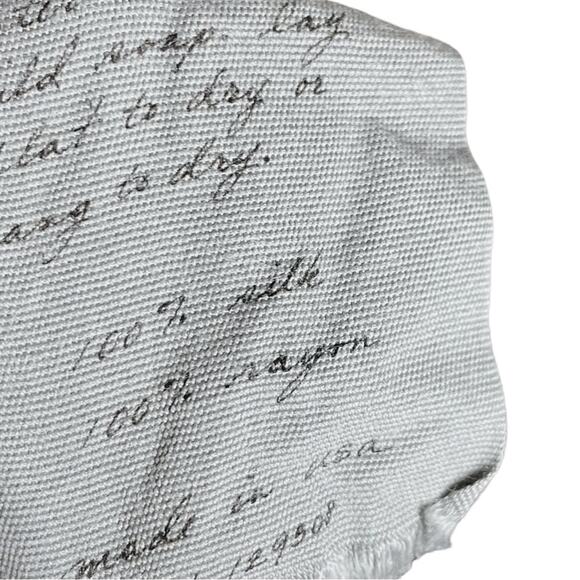 ild soap. lay
lat to dry or
ang to dry.
100% silk
100% rayon
made in usa
129508